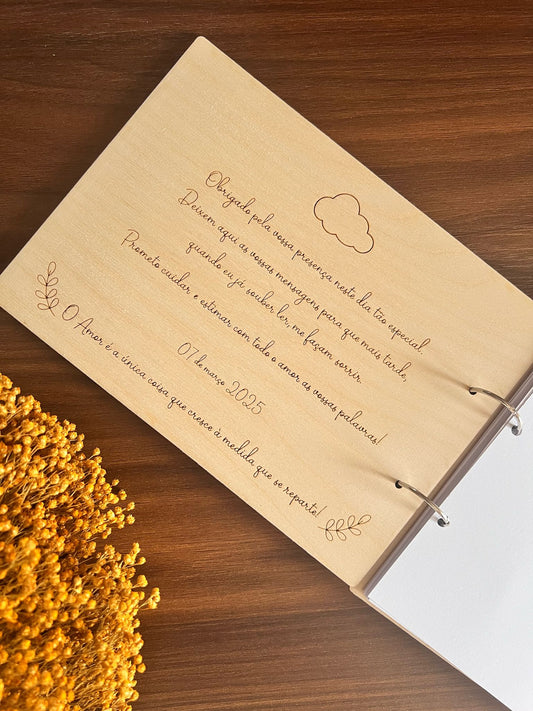 Obrigado pela vossa presença neste dia tão especial.
Deixem aqui as vossas mensagens para que mais tarde,
quando eu já souber ler, me façam sorrir.
Prometo cuidar e estimar com todo o amor as vossas palavras!
07 de março 2025
O Amor é a única coisa que cresce à medida que se reparte!